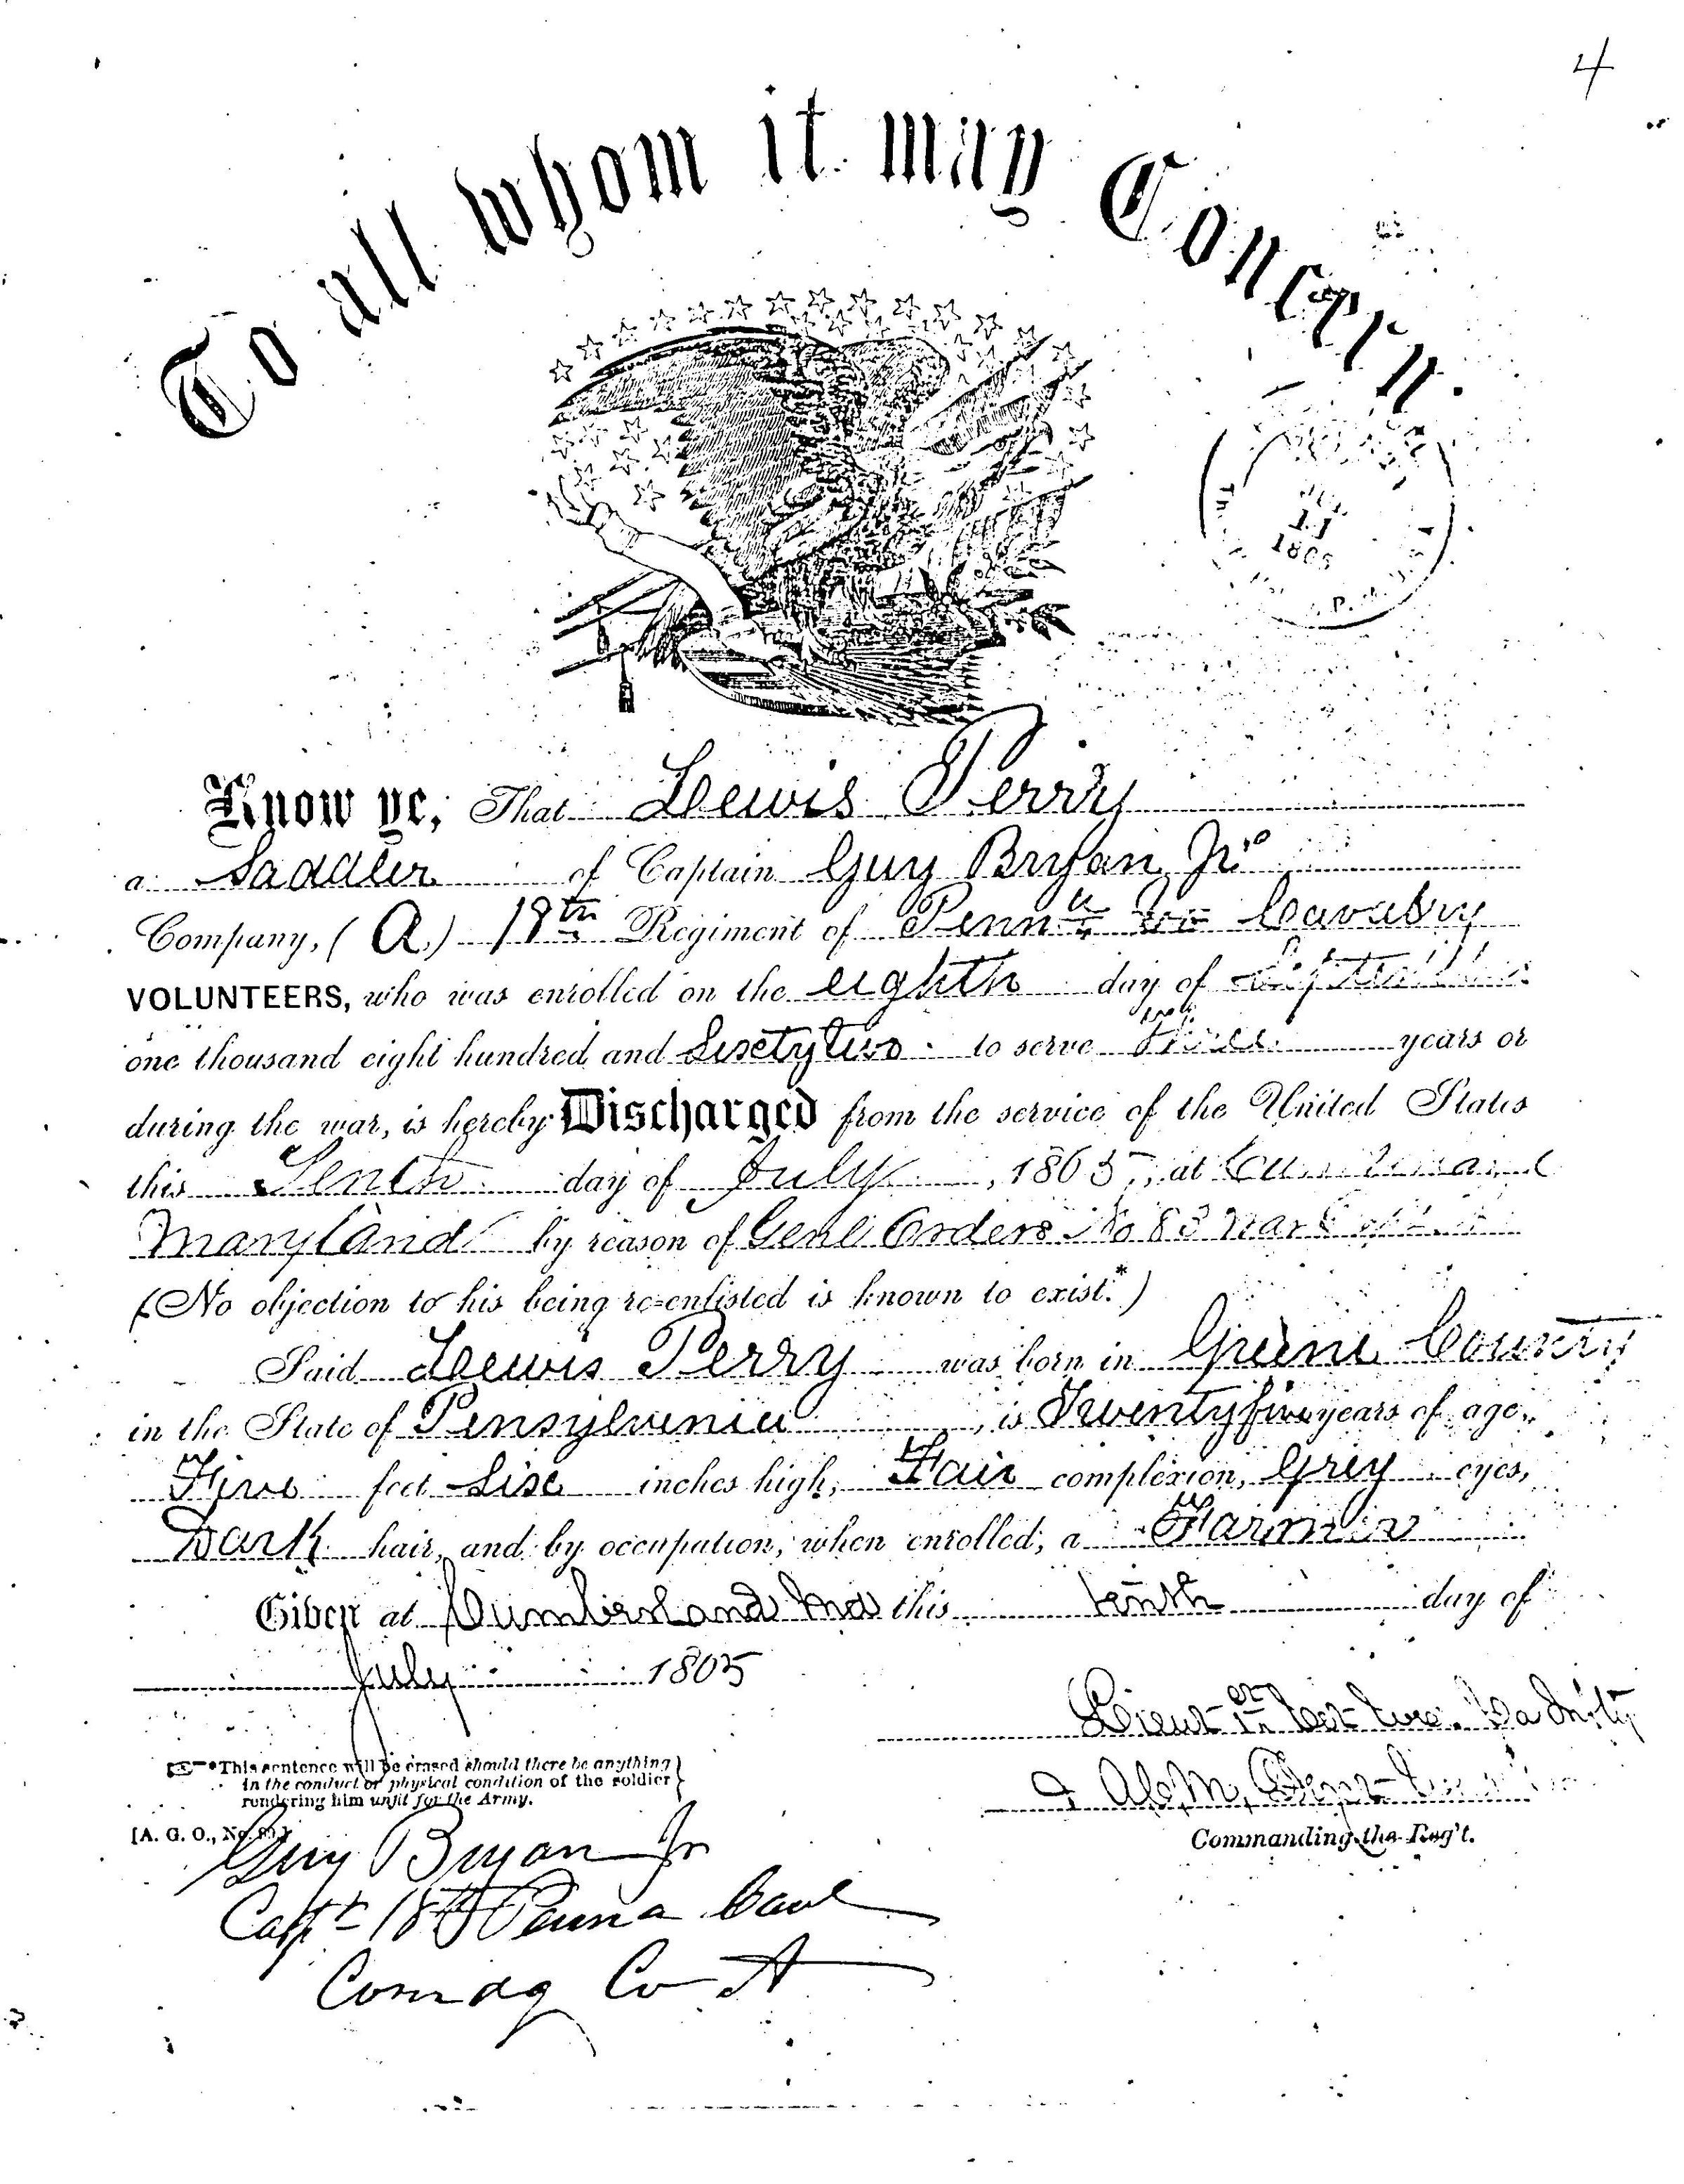 4
To all whom it may Concern.
11
1865
P.
Know ye, That Lewis Perry
a Saddler of Captain Guy Bryan Jr.
Company, (A.) 18th Regiment of Penna Cavalry
VOLUNTEERS, who was enrolled on the eighth day of September
one thousand eight hundred and Sixety two to serve three years or
during the war, is hereby Discharged from the service of the United States
this Tenth day of July, 1865, at Cumberland
Maryland by reason of Genl Orders No 83 War
(No objection to his being re-enlisted is known to exist.*)
Said Lewis Perry was born in Greene County
in the State of Pensylvania, is Twenty five years of age,
Five feet Six inches high, Fair complexion, Grey eyes,
Dark hair, and by occupation, when enrolled, a Farmer
Given at Cumberland Md this tenth day of
July 1865
Lieut
*This sentence will be erased should there be anything
in the conduct or physical condition of the soldier
rendering him unfit for the Army.
[A. G. O., No. 99.]
A.C.M.
Commanding the Reg't.
Guy Bryan Jr
Capt 18th Penna Cavl
Comdg Co A